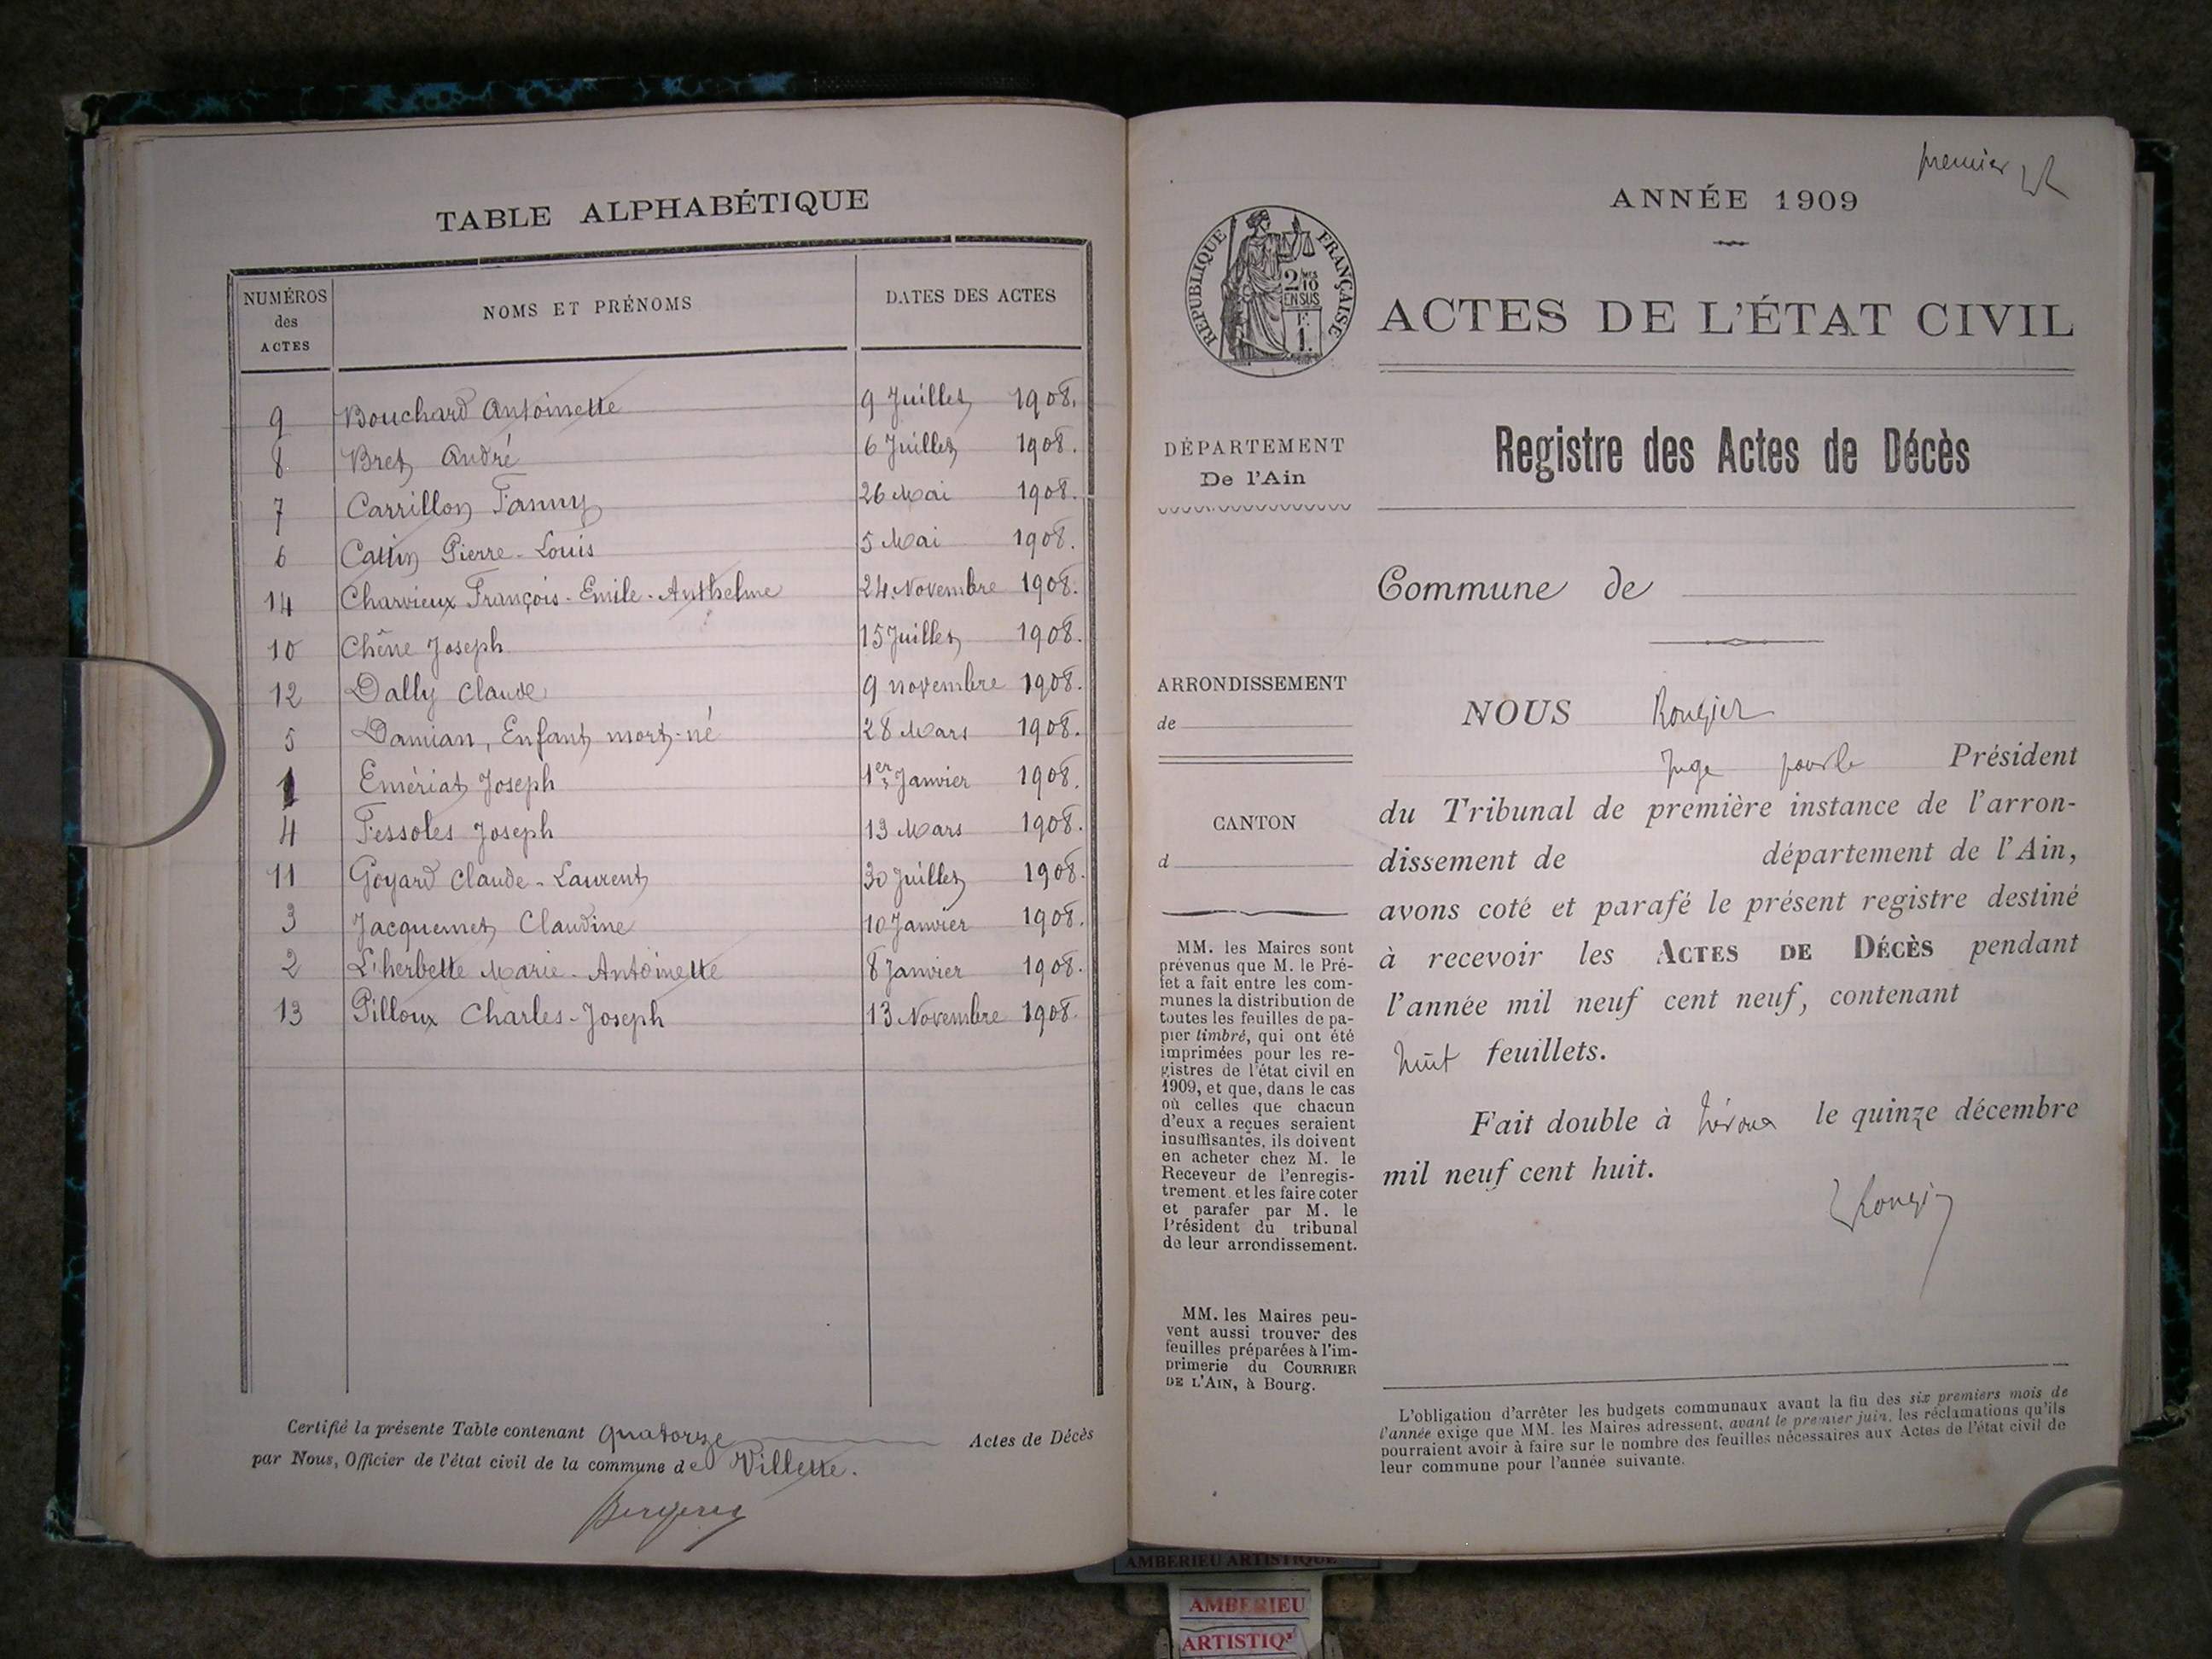 TABLE ALPHABÉTIQUE
NUMÉROS des ACTES NOMS ET PRÉNOMS DATES DES ACTES
9 Bouchard Antoinette 9 Juillet 1908.
8 Bret André 6 Juillet 1908.
7 Carrillon Fanny 26 Mai 1908.
6 Cattin Pierre-Louis 5 Mai 1908.
14 Charvieux François-Emile-Anthelme 24 Novembre 1908.
10 Chêne Joseph 15 Juillet 1908.
12 Dally Claude 9 novembre 1908.
5 Damian, Enfant mort-né 28 Mars 1908.
1 Emériat Joseph 1er Janvier 1908.
4 Fessoles Joseph 13 Mars 1908.
11 Goyard Claude-Laurent 30 Juillet 1908.
3 Jacquemet Claudine 10 Janvier 1908.
2 L'herbette Marie-Antoinette 8 Janvier 1908.
13 Pilloux Charles-Joseph 13 Novembre 1908.
Certifié la présente Table contenant quatorze Actes de Décès
par Nous, Officier de l'état civil de la commune de Villette.
premier
ANNÉE 1909
RÉPUBLIQUE FRANÇAISE
2/10mes
EN SUS
F.
1.
ACTES DE L'ÉTAT CIVIL
DÉPARTEMENT
De l'Ain
ARRONDISSEMENT
de
CANTON
d
MM. les Maires sont
prévenus que M. le Pré-
fet a fait entre les com-
munes la distribution de
toutes les feuilles de pa-
pier timbré, qui ont été
imprimées pour les re-
gistres de l'état civil en
1909, et que, dans le cas
où celles que chacun
d'eux a reçues seraient
insuffisantes, ils doivent
en acheter chez M. le
Receveur de l'enregis-
trement et les faire coter
et parafer par M. le
Président du tribunal
de leur arrondissement.
MM. les Maires peu-
vent aussi trouver des
feuilles préparées à l'im-
primerie du COURRIER
DE L'AIN, à Bourg.
Registre des Actes de Décès
Commune de
NOUS Rougier
Juge pour le Président
du Tribunal de première instance de l'arron-
dissement de département de l'Ain,
avons coté et parafé le présent registre destiné
à recevoir les ACTES DE DÉCÈS pendant
l'année mil neuf cent neuf, contenant
huit feuillets.
Fait double à le quinze décembre
mil neuf cent huit.
Rougier
L'obligation d'arrêter les budgets communaux avant la fin des six premiers mois de
l'année exige que MM. les Maires adressent, avant le premier juin, les réclamations qu'ils
pourraient avoir à faire sur le nombre des feuilles nécessaires aux Actes de l'état civil de
leur commune pour l'année suivante.
AMBERIEU ARTISTIQUE
AMBERIEU
ARTISTIQ